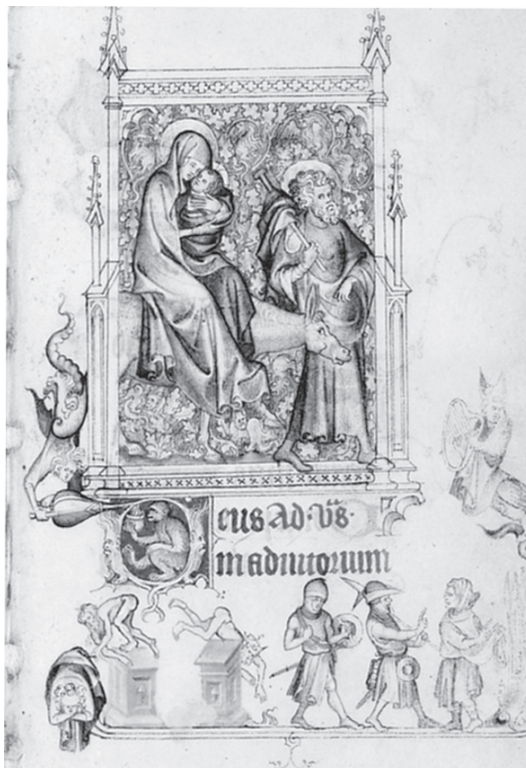 Deus Ad·v̄s·
in adiutorium